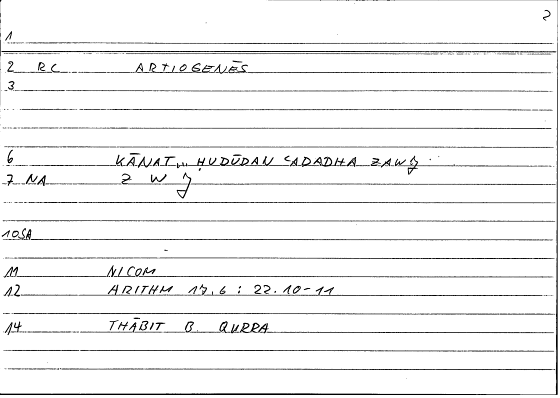 2
1
2 RC ARTIOGENĒS
3
6 KĀNAT... ḤUDŪDAN ʿADADHA ZAWǧ
7 NA Z W ǧ
10 SA
11 NICOM
12 ARITHM 17.6 : 22.10-11
14 THĀBIT B. QURRA